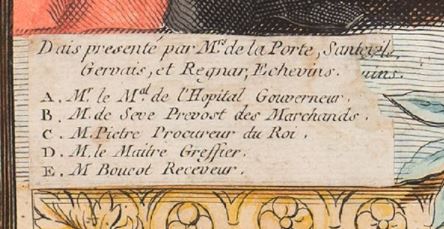 Dais presenté par M.rs de la Porte, Santeüil,
Gervais, et Regnar, Echevins. uins.
A. M.r le M.al de l'Hopital Gouverneur.
B. M. de Seve Prevost des Marchands.
C. M. Pietre Procureur du Roi.
D. M. le Maitre Greffier.
E. M Boucot Receveur.